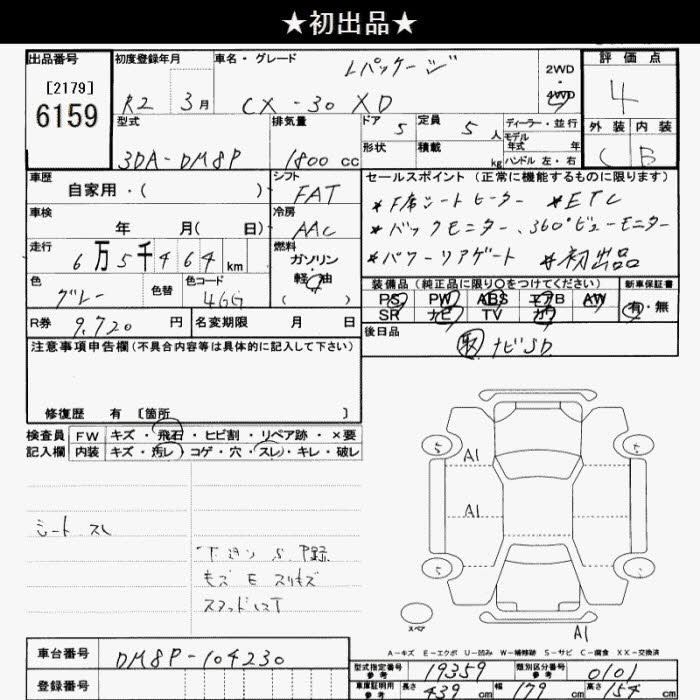 ★初出品★
出品番号
[2179]
6159
初度登録年月
R2 3月
車名・グレード
Lパッケージ
CX-30 XD
2WD
・
4WD
評価点
4
外装 内装
C B
型式
3DA-DM8P
排気量
1800 cc
ドア 5
定員 5 人
形状
積載 kg
ディーラー・並行
モデル年式 年
ハンドル 左・右
車歴
自家用・( )
シフト
FAT
車検
年 月( 日)
冷房
AAC
走行
6万5千464km
燃料
ガソリン
・
軽油
( )
色
グレー
色替
色コード
46G
R券 9,720 円
名変期限 月 日
セールスポイント(正常に機能するものに限ります)
*F席シートヒーター *ETC
*バックモニター、360°ビューモニター
*パワーリアゲート *初出品
装備品(純正品に限り○をつけてください)
新車保証書
PS PW ABS エアB AW
SR ナビ TV カワ
有・無
後日品
取 ナビSD
注意事項申告欄(不具合内容等は具体的に記入して下さい)
修復歴 有 [箇所 ]
検査員
記入欄
FW キズ・飛石・ヒビ割・リペア跡・×要
内装 キズ・汚レ・コゲ・穴・スレ・キレ・破レ
シート スレ
下廻り S
モズ E スリキズ
スタッドレスT
5
5
5
5
A1
A1
スペア
A1
A-キズ E-エクボ U-凹み W-補修跡 S-サビ C-腐食 XX-交換済
車台番号 DM8P-104230
登録番号
型式指定番号
参考
19359
類別区分番号
参考
0101
車庫証明用
参考
長さ 439 cm
幅 179 cm
高さ 154 cm